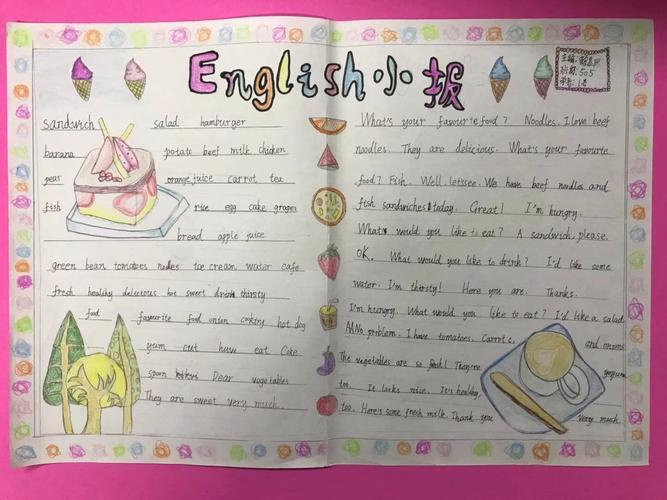 English小报
主编:
班级:505
学号:1号
sandwich salad hamburger
banana potato beef milk chicken
pear orange juice carrot tea
fish rice egg cake grapes
bread apple juice
green bean tomatoes ice cream water cafe
fresh healthy delicious hot sweet drink thirsty
food favourite food onion cooking hot dog
yum cut have eat Coke
spoon Dear vegetables
They are sweet very much.
What's your favourite food? Noodles. I love beef
noodles. They are delicious. What's your favourite
food? Fish. Well, let's see. We have beef noodles and
fish sandwiches today. Great! I'm hungry.
What would you like to eat? A sandwich, please.
OK. What would you like to drink? I'd like some
water. I'm thirsty! Here you are. Thanks.
I'm hungry. What would you like to eat? I'd like a salad
No problem. I have tomatoes. Carrots. and onions
The vegetables are so fresh! They're
too. It looks nice. It's healthy,
too. Here's some fresh milk. Thank you very much.